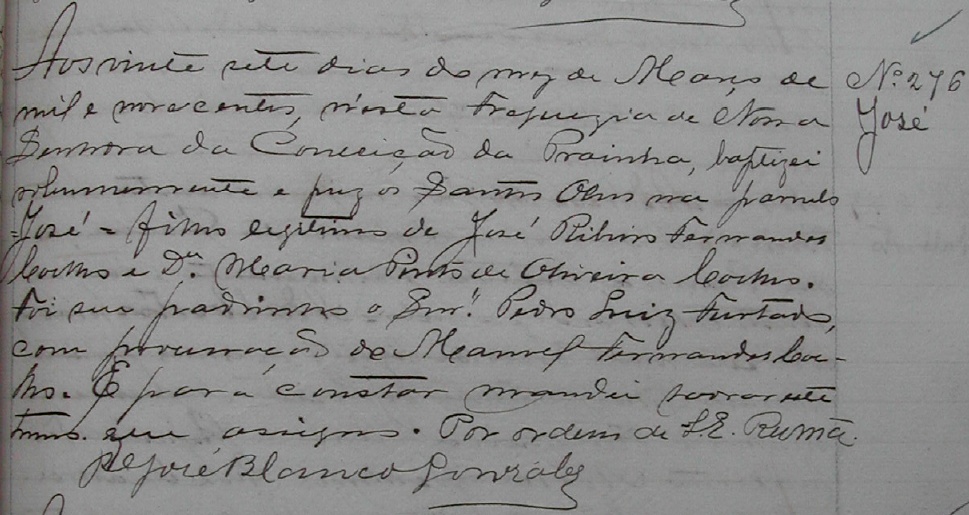 Aos vinte sete dias do mez de Março de
mil e novecentos, n'esta Freguezia de Nossa
Senhora da Conceição da Prainha, baptizei
solemnemente e puz os Santos Oleos no parvulo
=José= filho legitimo de José Ribeiro Fernandes
Coelho e Dª. Maria Pinto de Oliveira Coelho.
Foi seu padrinho o Snr. Pedro Luiz Furtado,
com procuração de Manoel Fernandes Coe-
lho. E para constar mandei lavrar este
termo que assigno. Por ordem de S. E. Rvmª.
Pe José Blanco Gonzalez
Nº 276
José